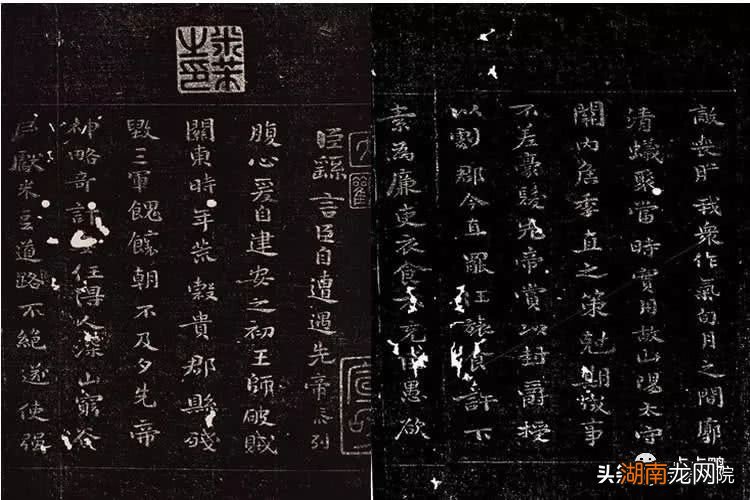 米芾之印
臣繇言臣自遭遇先帝忝列
腹心爰自建安之初王師破賊
關東時年荒穀貴郡縣殘
毀三軍餽饟朝不及夕先帝
神略奇計任得人深山窮谷
民獻米豆道路不絕遂使強
敵喪肝我衆作氣旬月之間廓
清蟻聚當時實用故山陽太守
關內侯季直之策剋期成事
不差豪髮先帝賞以封爵授
以劇郡今直罷任旅食許下
素為廉吏衣食不充臣愚欲
头条
湖南龙网院